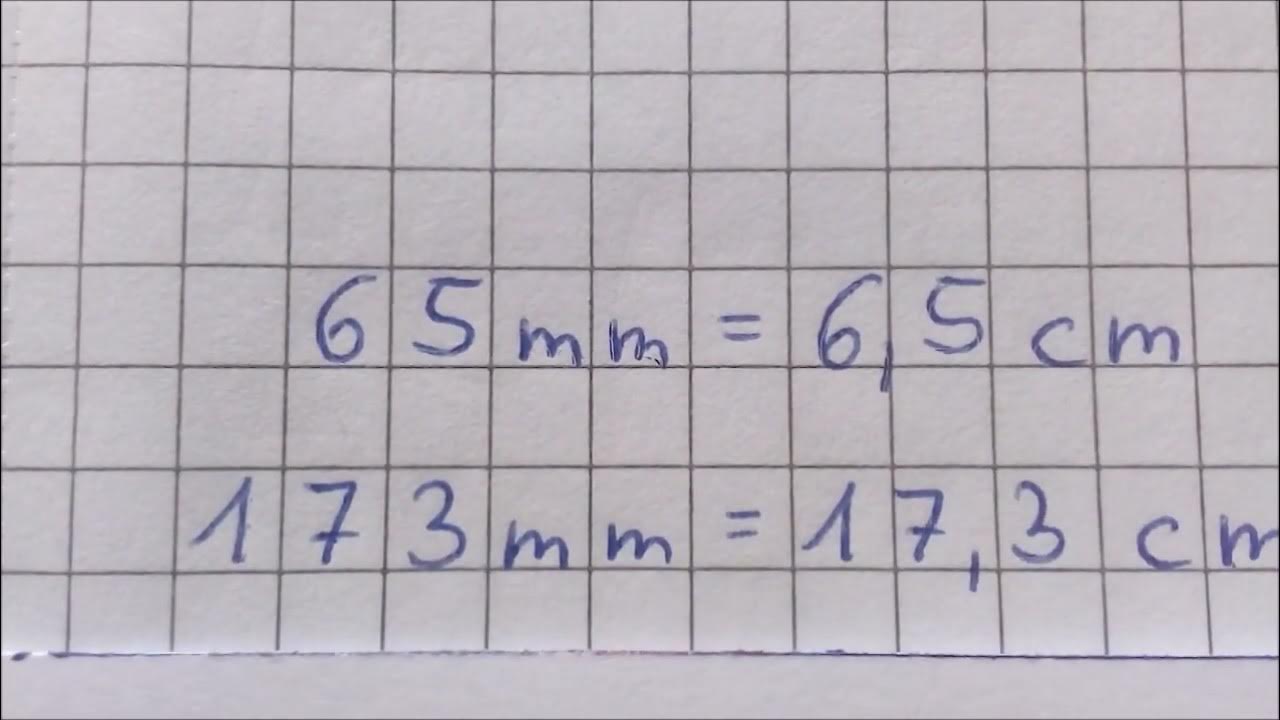 65 mm = 6,5 cm
173 mm = 17,3 cm